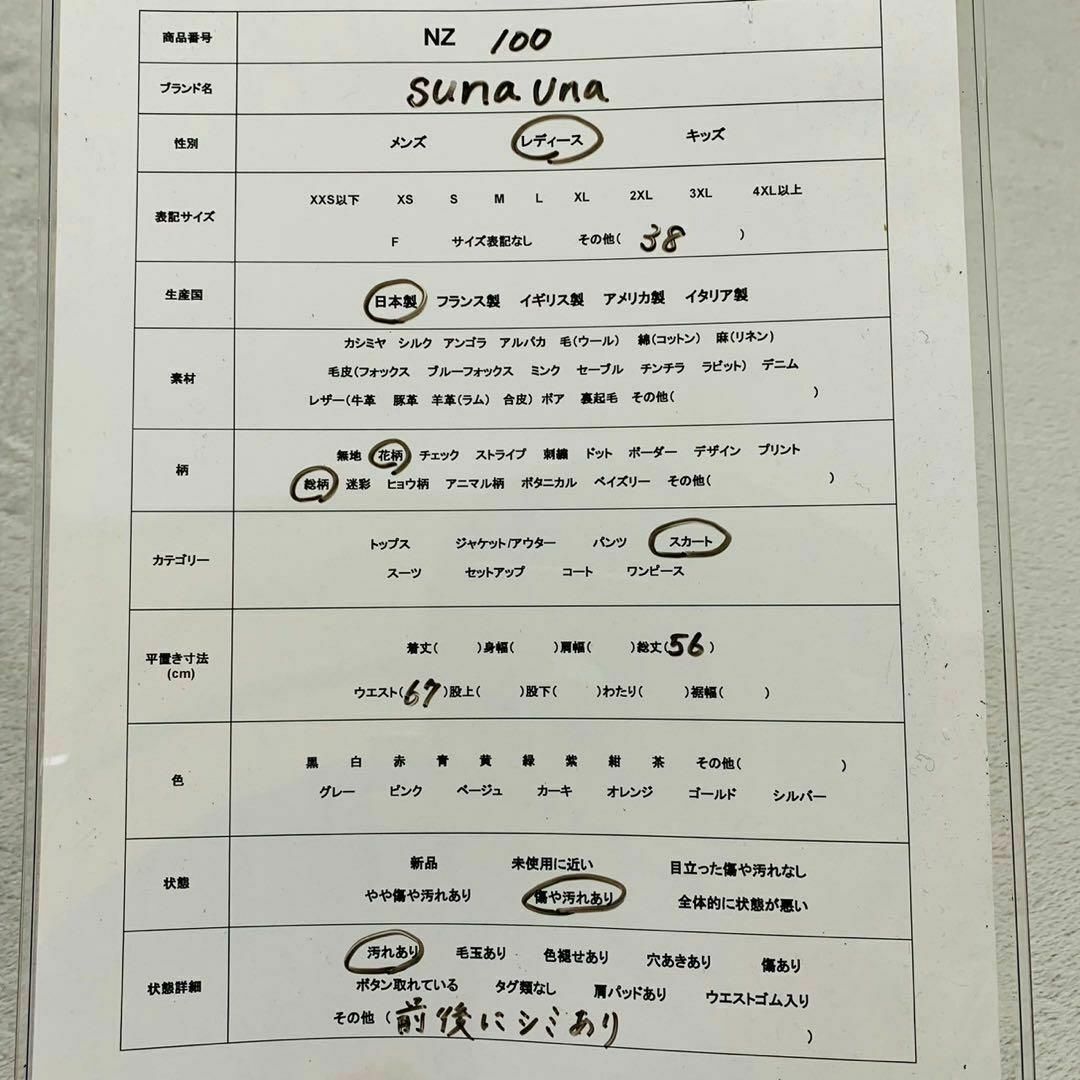 商品番号 NZ 100
ブランド名 suna una
性別 メンズ レディース キッズ
表記サイズ
XXS以下 XS S M L XL 2XL 3XL 4XL以上
F サイズ表記なし その他( 38 )
生産国 日本製 フランス製 イギリス製 アメリカ製 イタリア製
素材
カシミヤ シルク アンゴラ アルパカ 毛(ウール) 綿(コットン) 麻(リネン)
毛皮(フォックス ブルーフォックス ミンク セーブル チンチラ ラビット) デニム
レザー(牛革 豚革 羊革(ラム) 合皮) ボア 裏起毛 その他( )
柄
無地 花柄 チェック ストライプ 刺繍 ドット ボーダー デザイン プリント
総柄 迷彩 ヒョウ柄 アニマル柄 ボタニカル ペイズリー その他( )
カテゴリー
トップス ジャケット/アウター パンツ スカート
スーツ セットアップ コート ワンピース
平置き寸法
(cm)
着丈( )身幅( )肩幅( )総丈(56)
ウエスト(67)股上( )股下( )わたり( )裾幅( )
色
黒 白 赤 青 黄 緑 紫 紺 茶 その他( )
グレー ピンク ベージュ カーキ オレンジ ゴールド シルバー
状態
新品 未使用に近い 目立った傷や汚れなし
やや傷や汚れあり 傷や汚れあり 全体的に状態が悪い
状態詳細
汚れあり 毛玉あり 色褪せあり 穴あきあり 傷あり
ボタン取れている タグ類なし 肩パッドあり ウエストゴム入り
その他 (前後にシミあり )